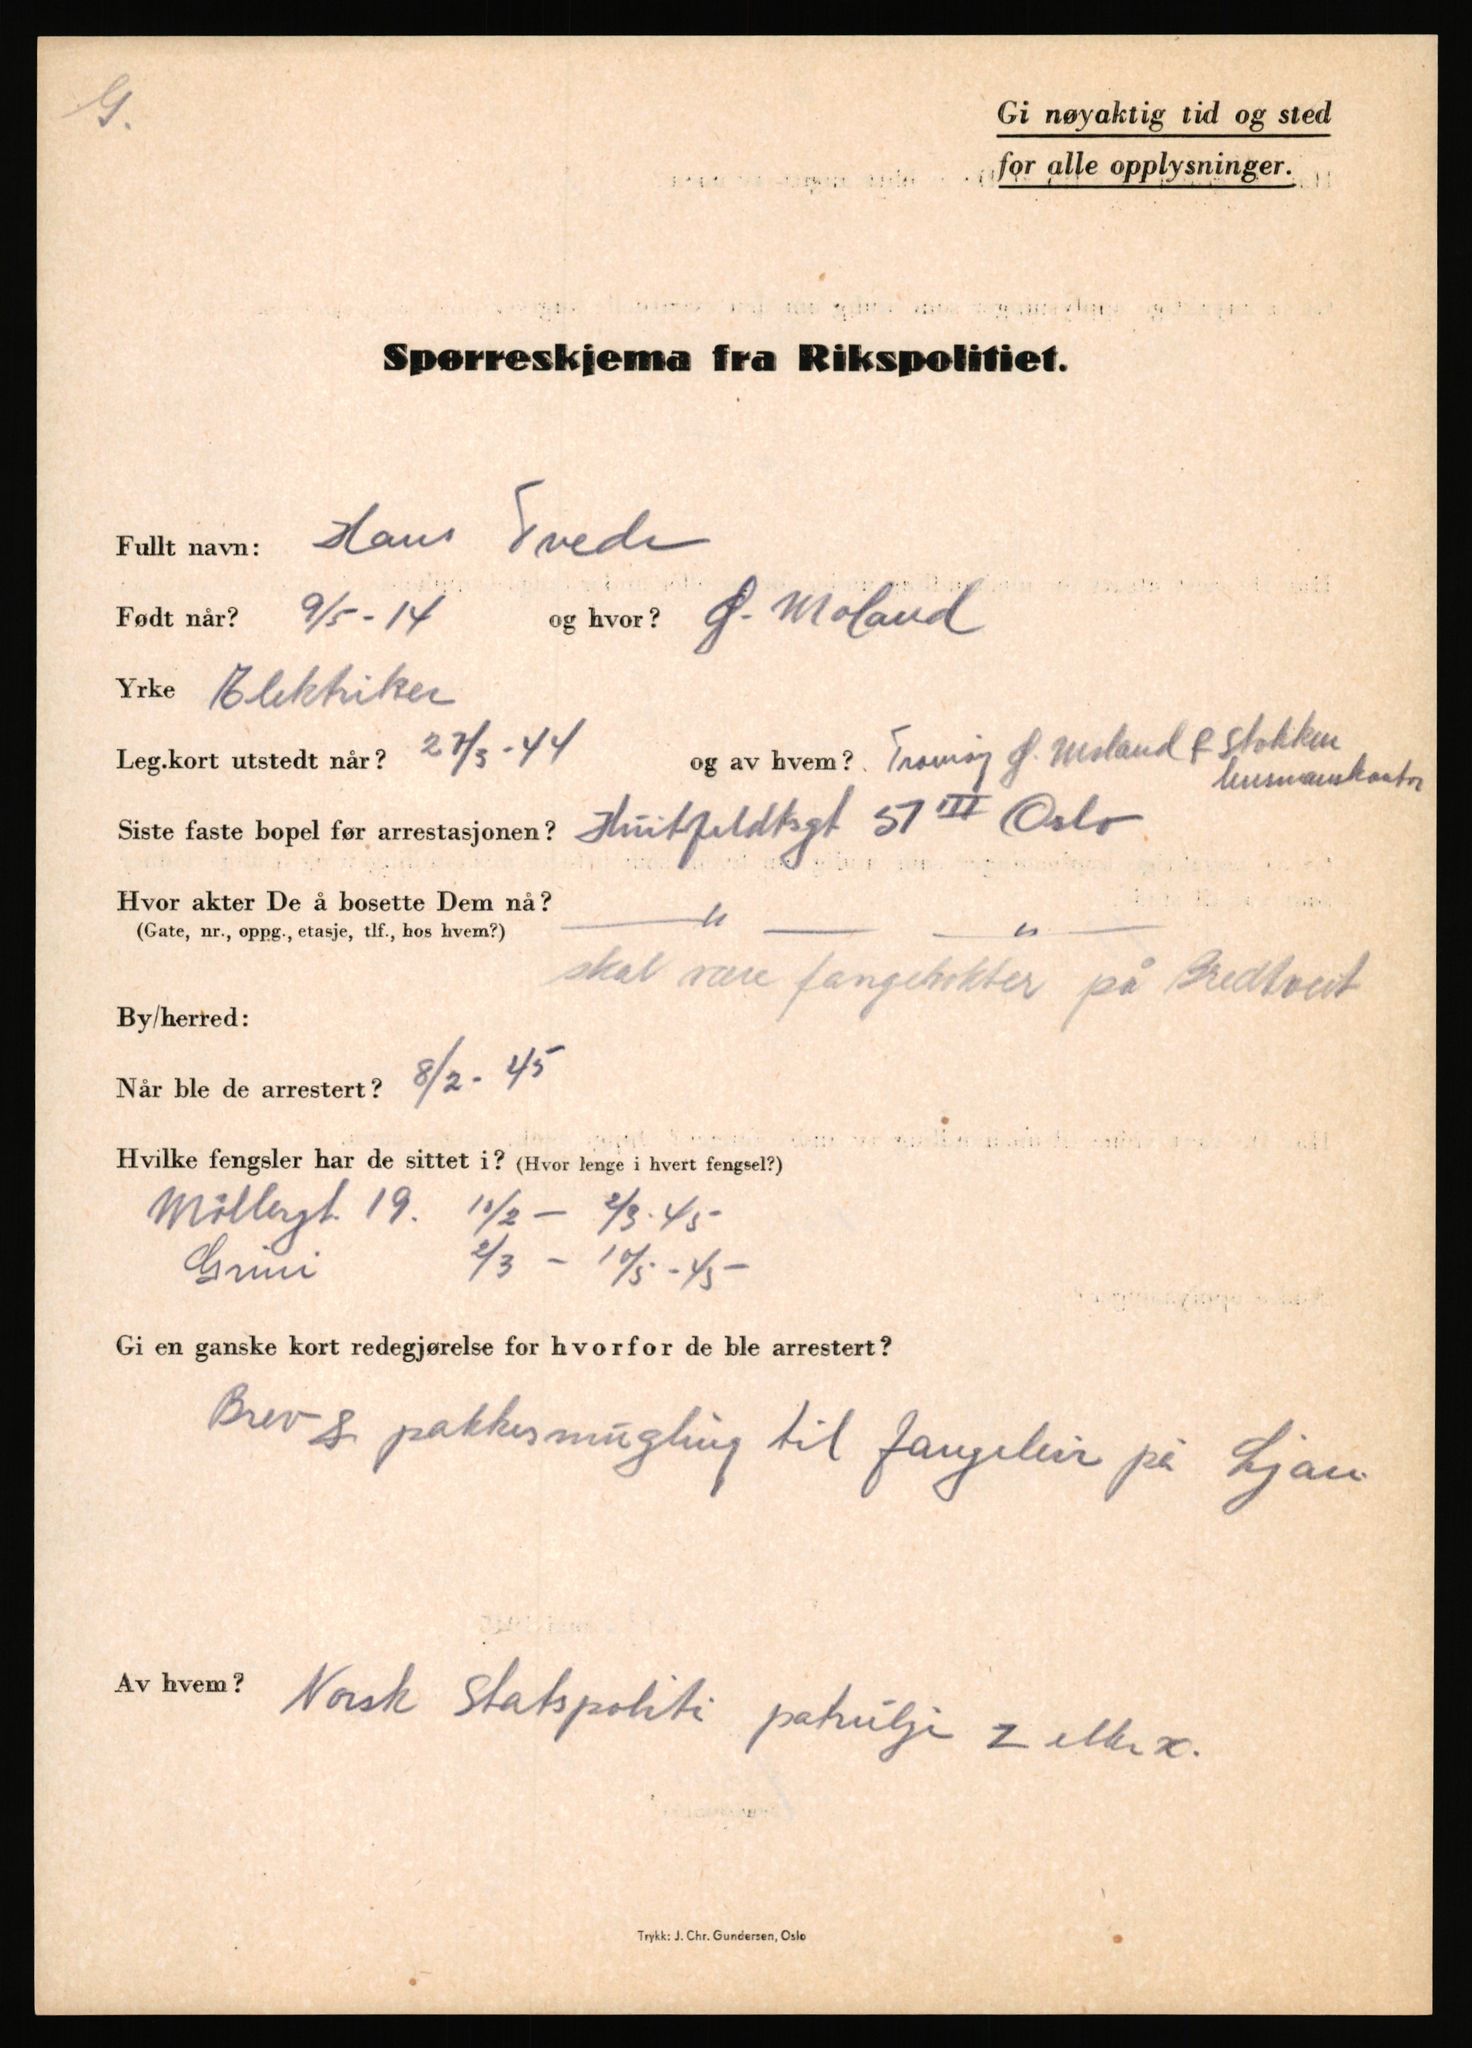 G.
Gi nøyaktig tid og sted
for alle opplysninger.
Spørreskjema fra Rikspolitiet.
Fullt navn: Hans Tvede
Født når? 9/5 - 14 og hvor? Ø. Moland
Yrke Elektriker
Leg.kort utstedt når? 27/3 - 44 og av hvem? Tromøy Ø. Moland & Stokken
lensmanskontor
Siste faste bopel før arrestasjonen? Huitfeldtsgt 51 III Oslo
Hvor akter De å bosette Dem nå? — " — — " —
(Gate, nr., oppg., etasje, tlf., hos hvem?)
skal være fangevokter på Bredtveit
By/herred:
Når ble de arrestert? 8/2 - 45
Hvilke fengsler har de sittet i? (Hvor lenge i hvert fengsel?)
Möllergt. 19. 10/2 — 2/3 - 45
Grini 2/3 — 10/5 - 45
Gi en ganske kort redegjørelse for hvorfor de ble arrestert?
Brev & pakkesmugling til fangeleir på Ljan.
Av hvem? Norsk Statspoliti patrulje Z eller x.
Trykk: J. Chr. Gundersen, Oslo